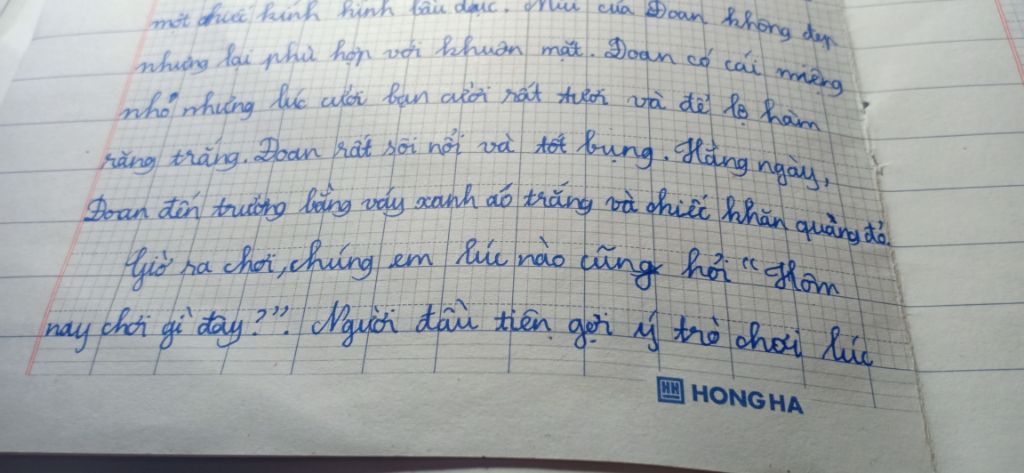 một chiếc kính hình bầu dục. Mũi của Đoan không đẹp
nhưng lại phù hợp với khuôn mặt. Đoan có cái miệng
nhỏ nhưng lúc cười bạn cười rất tươi và để lộ hàm
răng trắng. Đoan rất sôi nổi và tốt bụng. Hằng ngày,
Đoan đến trường bằng váy xanh áo trắng và chiếc khăn quàng đỏ.
Giờ ra chơi, chúng em lúc nào cũng hỏi "Hôm
nay chơi gì đây?". Người đầu tiên gợi ý trò chơi lúc
HH HONG HA